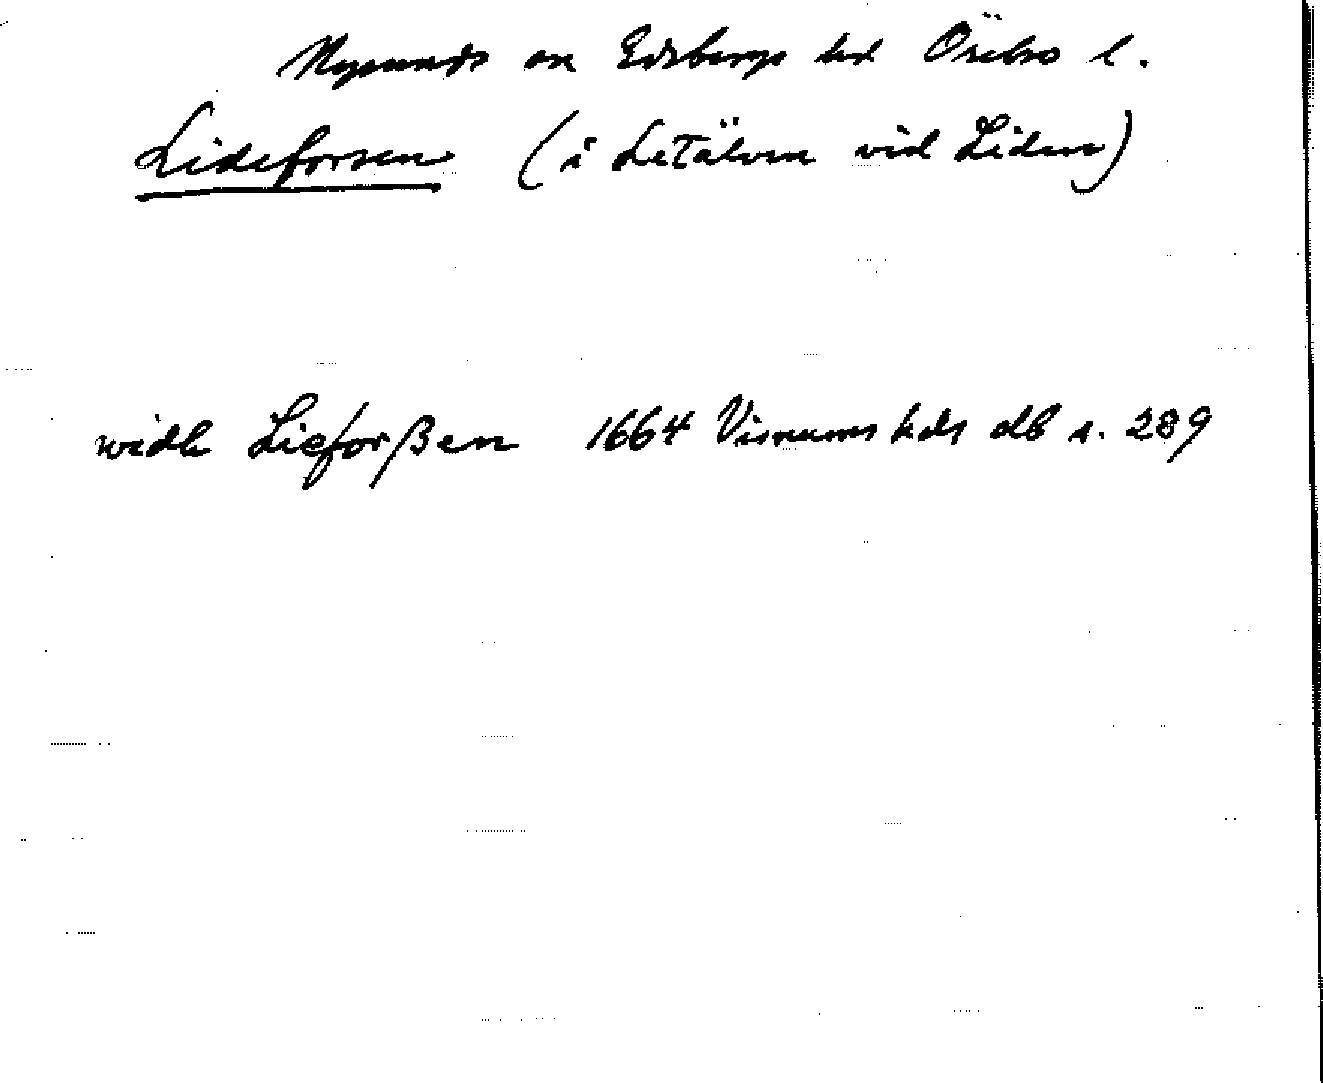 Nysunds sn Edsbergs hd Örebro l.
Lideforsen (i Letälven vid Liden)
widh Lieforßen 1664 Visnums hds db s. 289